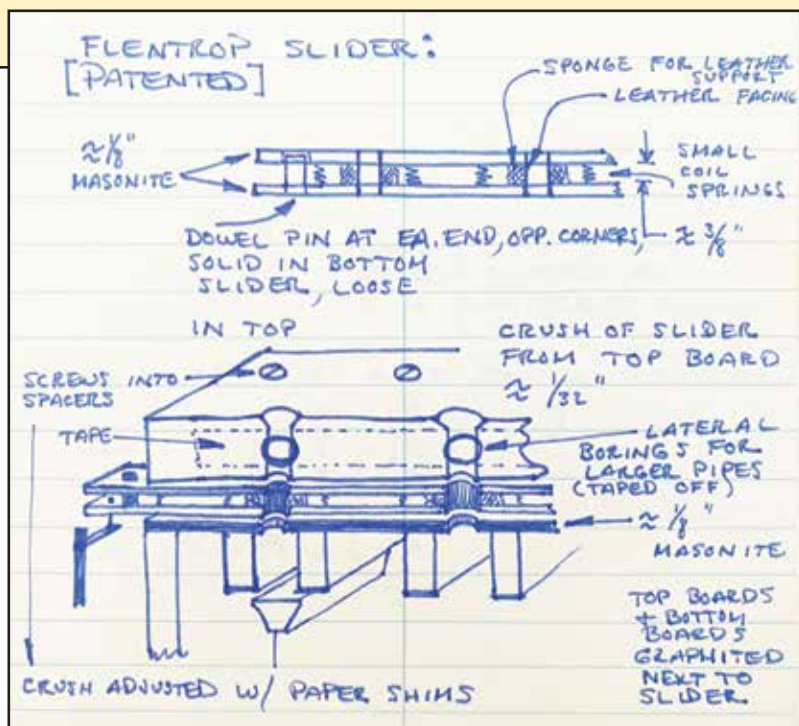 FLENTROP SLIDER:
[PATENTED]
SPONGE FOR LEATHER
SUPPORT
LEATHER FACING
≈ 1/8"
MASONITE
SMALL
COIL
SPRINGS
DOWEL PIN AT EA. END, OPP. CORNERS,
SOLID IN BOTTOM
SLIDER, LOOSE
IN TOP
≈ 3/8"
CRUSH OF SLIDER
FROM TOP BOARD
≈ 1/32"
SCREWS INTO
SPACERS
TAPE
LATERAL
BORINGS FOR
LARGER PIPES
(TAPED OFF)
≈ 1/8"
MASONITE
TOP BOARDS
+ BOTTOM
BOARDS
GRAPHITED
NEXT TO
SLIDER.
CRUSH ADJUSTED W/ PAPER SHIMS